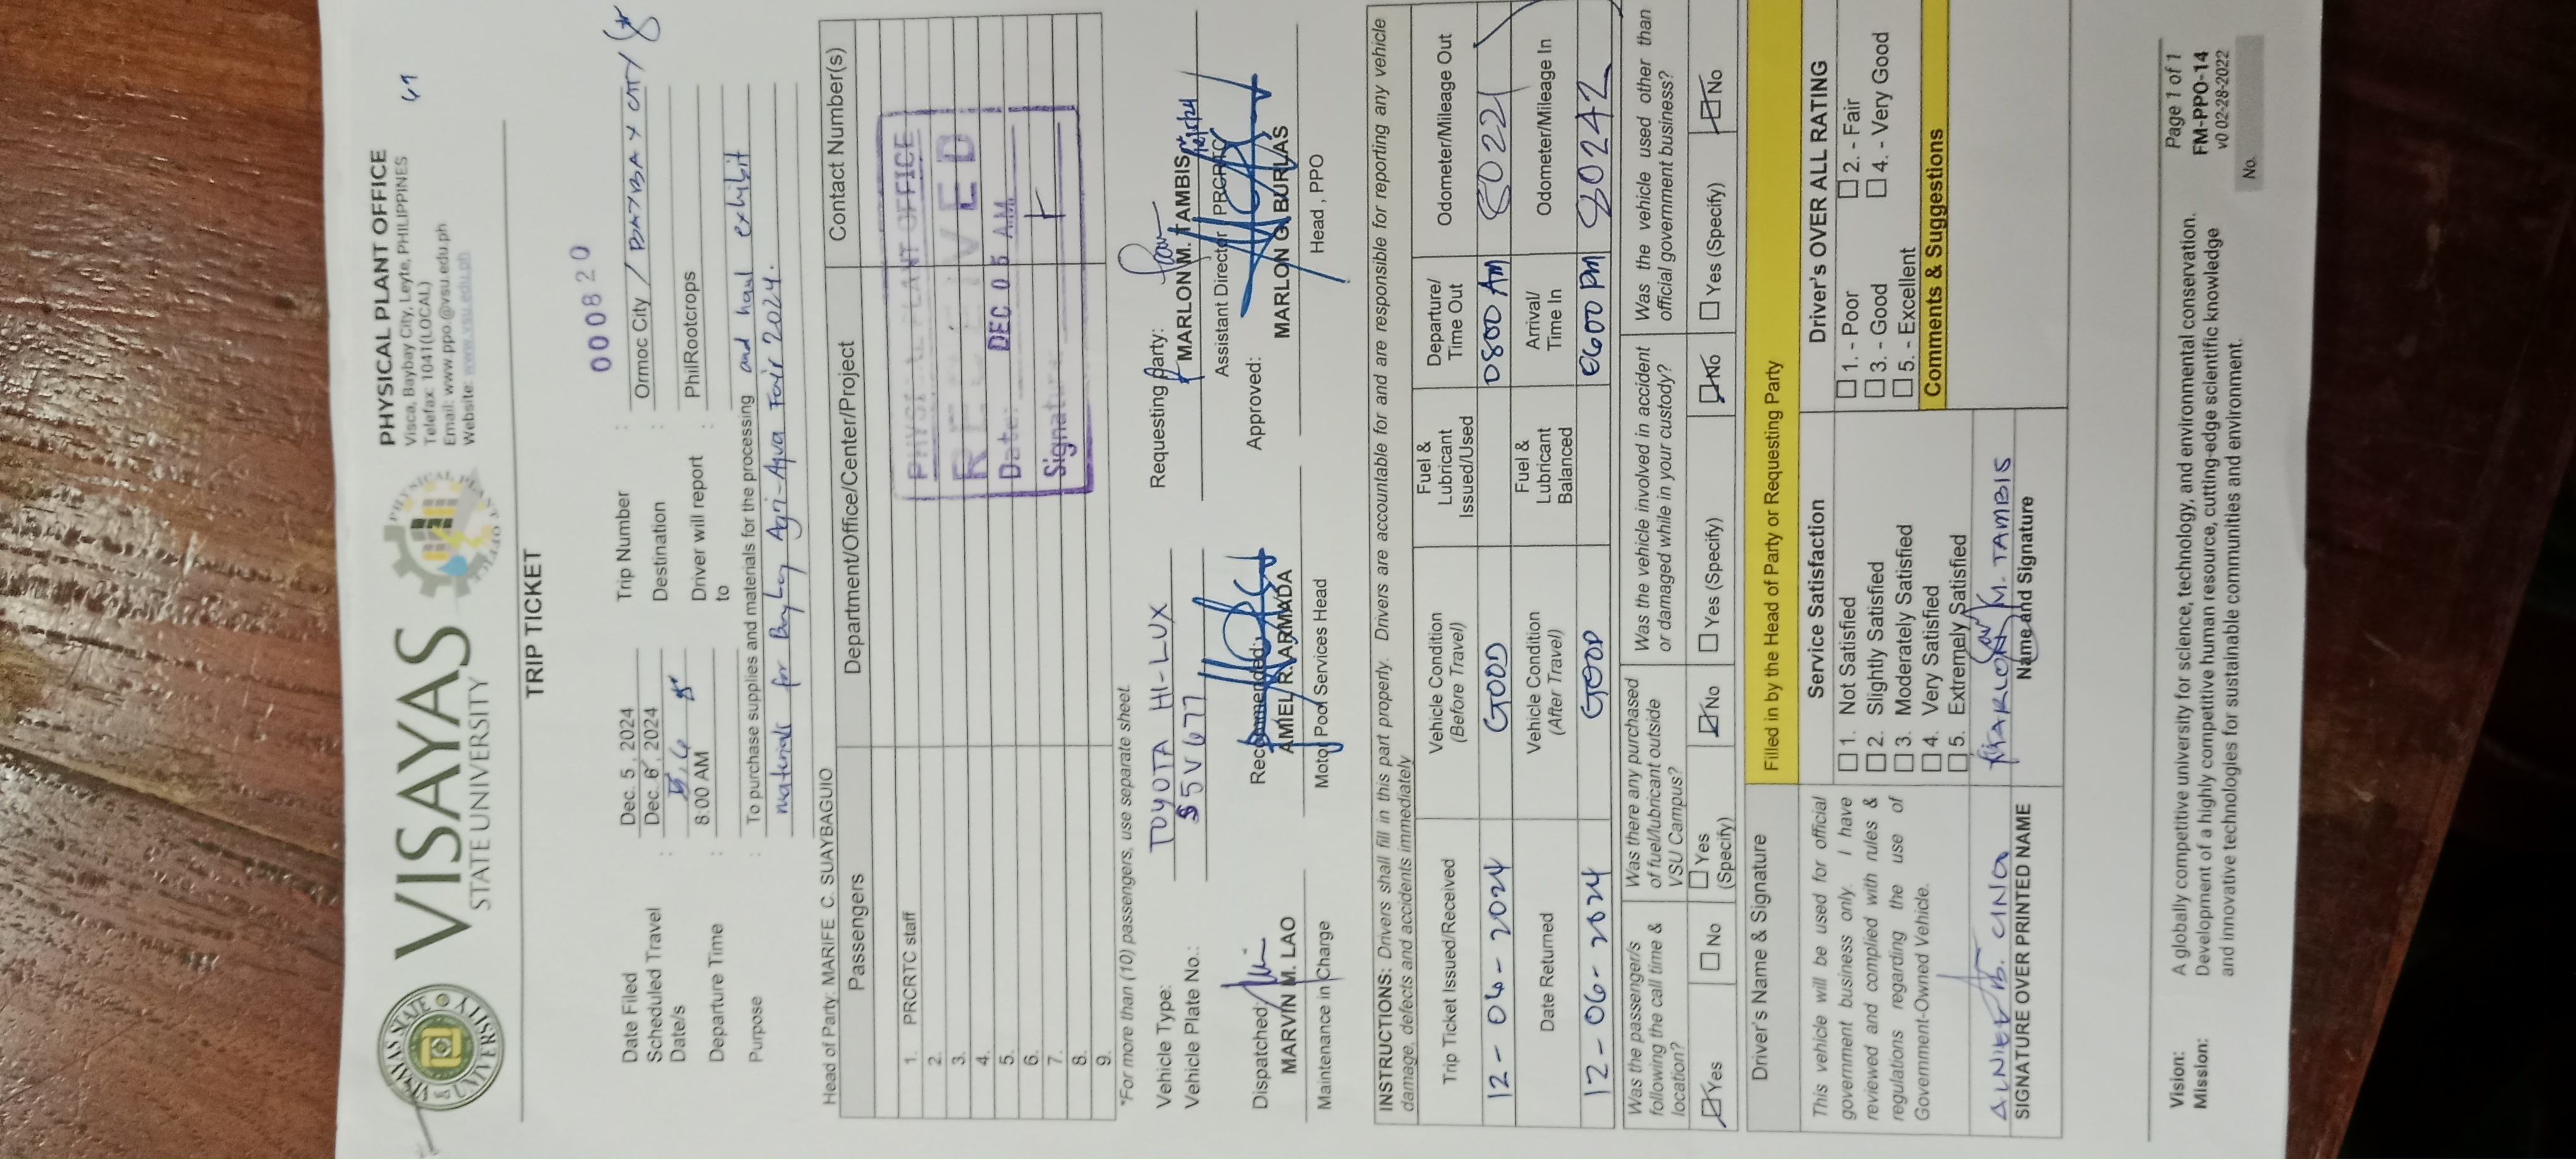 VISAYAS
STATE UNIVERSITY
PHYSICAL PLANT OFFICE
Visca, Baybay City, Leyte, PHILIPPINES
Telefax: 1041(LOCAL)
Email: www.ppo.@vsu.edu.ph
Website: www.vsu.edu.ph
TRIP TICKET
000820
Date Filed Dec. 5, 2024 Trip Number :
Scheduled Travel Date/s : Dec. 6, 2024 Destination : Ormoc City / BAYBAY CITY
Departure Time : 8:00 AM Driver will report to : PhilRootcrops
Purpose : To purchase supplies and materials for the processing and haul exhibit
materials for Baybay Agri-Aqua Fair 2024.
Head of Party: MARIFE C. SUAYBAGUIO
Passengers Department/Office/Center/Project Contact Number(s)
1. PRCRTC staff
2.
3.
4.
5.
6.
7.
8.
9.
PHYSICAL PLANT OFFICE
RECEIVED
Date: DEC 05 AM
Signature
*For more than (10) passengers, use separate sheet.
Vehicle Type: TOYOTA HI-LUX
Vehicle Plate No.: S5V677
Requesting Party:
MARLON M. TAMBIS
Assistant Director PRCRTC
Dispatched: Recommended: Approved:
MARVIN M. LAO AMIEL R. ARMADA MARLON G. BURLAS
Maintenance in Charge Motor Pool Services Head Head, PPO
INSTRUCTIONS: Drivers shall fill in this part properly. Drivers are accountable for and are responsible for reporting any vehicle
damage, defects and accidents immediately
Trip Ticket Issued/Received Vehicle Condition (Before Travel) Fuel & Lubricant Issued/Used Departure/ Time Out Odometer/Mileage Out
12-06-2024 GOOD 0800 AM 80221
Date Returned Vehicle Condition (After Travel) Fuel & Lubricant Balanced Arrival/ Time In Odometer/Mileage In
12-06-2024 GOOD 0600 PM 80242
Was the passenger/s following the call time & location? Was there any purchased of fuel/lubricant outside VSU Campus? Was the vehicle involved in accident or damaged while in your custody? Was the vehicle used other than official government business?
Yes No Yes (Specify) No Yes (Specify) No Yes (Specify) No
Driver's Name & Signature Filled in by the Head of Party or Requesting Party
This vehicle will be used for official
government business only. I have
reviewed and complied with rules &
regulations regarding the use of
Government-Owned Vehicle.
SIGNATURE OVER PRINTED NAME
Service Satisfaction
1. Not Satisfied
2. Slightly Satisfied
3. Moderately Satisfied
4. Very Satisfied
5. Extremely Satisfied
MARLON M. TAMBIS
Name and Signature
Driver's OVER ALL RATING
1. - Poor 2. - Fair
3. - Good 4. - Very Good
5. - Excellent
Comments & Suggestions
Vision: A globally competitive university for science, technology, and environmental conservation.
Mission: Development of a highly competitive human resource, cutting-edge scientific knowledge
and innovative technologies for sustainable communities and environment.
Page 1 of 1
FM-PPO-14
v0 02-28-2022
No.